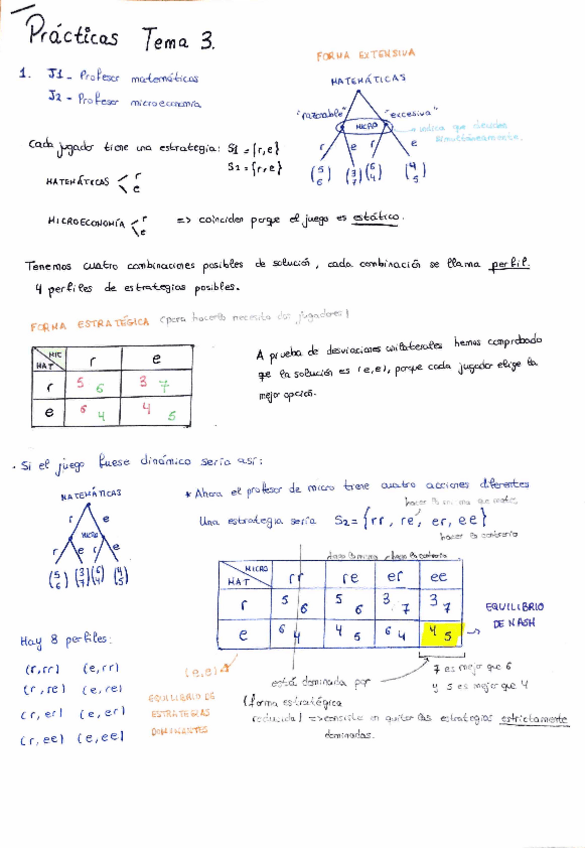 Prácticas Tema 3.
FORMA EXTENSIVA
1. J1 - Profesor matemáticas
J2 - Profesor microeconomía
MATEMÁTICAS
"razonable" "excesiva"
MICRO
indica que deciden
simultáneamente.
r e r e
(5 6) (3 7) (6 4) (4 5)
Cada jugador tiene una estrategia: S1 = {r,e}
S2 = {r,e}
MATEMÁTICAS < r
e
MICROECONOMÍA < r
e
=> coinciden porque el juego es estático.
Tenemos cuatro combinaciones posibles de solución, cada combinación se llama perfil.
4 perfiles de estrategias posibles.
FORMA ESTRATÉGICA (para hacerlo necesita dos jugadores)
MIC
MAT r e
r 5 6 3 7
e 6 4 4 5
A prueba de desviaciones unilaterales hemos comprobado
que la solución es (e,e), porque cada jugador elige la
mejor opción.
· Si el juego fuese dinámico sería así:
MATEMÁTICAS
r e
MICRO
r e r e
(5 6) (3 7) (6 4) (4 5)
* Ahora el profesor de micro tiene cuatro acciones diferentes
Una estrategia sería S2 = {rr, re, er, ee}
hacer lo contrario
MICRO
MAT rr re er ee
r 5 6 5 6 3 7 3 7
e 6 4 4 5 6 4 4 5
EQUILIBRIO
DE NASH
Hay 8 perfiles:
(r,rr) (e,rr)
(r,re) (e,re)
(r,er) (e,er)
(r,ee) (e,ee)
(e,e)
EQUILIBRIO DE
ESTRATEGIAS
DOMINANTES
está dominada por
7 es mejor que 6
y 5 es mejor que 4
(forma estratégica
reducida) => consiste en quitar las estrategias estrictamente
dominadas.